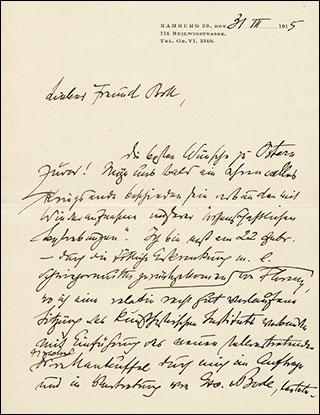 HAMBURG 20, DEN 31 III 1915
114 HEILWIGSTRASSE.
TEL. GR. VI. 3360.
Lieber Freund Boll,
Die besten Wünsche zu Ostern
zuvor! Möge uns bald ein ehrenvolles
Kriegsende beschieden sein verbunden mit
Wiederaufnahme unserer wissenschaftlichen
Bestrebungen. Ich bin erst am 22 Febr.
– durch die Erkrankung m. l.
Schwiegermutter zurückgekommen von Florenz
wo ich eine relativ recht gut verlaufene
Sitzung des Kunsthistorischen Instituts verbunden
mit Einführung des neuen
durch mich im Auftrage
und in Vertretung von Bode,